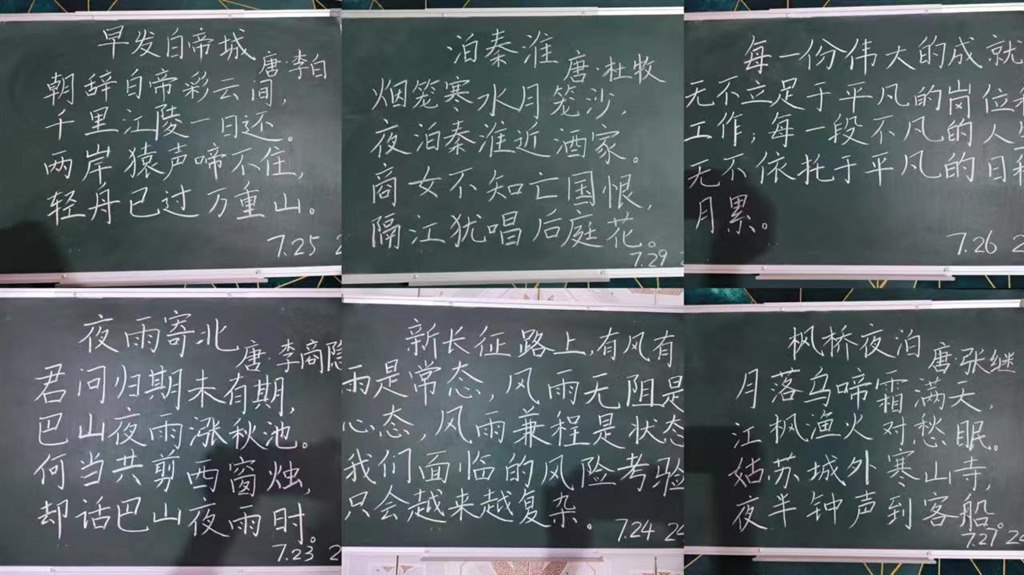 早发白帝城
唐·李白
朝辞白帝彩云间，
千里江陵一日还。
两岸猿声啼不住，
轻舟已过万重山。
7.25
泊秦淮
唐·杜牧
烟笼寒水月笼沙，
夜泊秦淮近酒家。
商女不知亡国恨，
隔江犹唱后庭花。
7.29
每一份伟大的成就
无不立足于平凡的岗位和
工作，每一段不凡的人生
无不依托于平凡的日积
月累。
7.26 2
夜雨寄北
唐·李商隐
君问归期未有期，
巴山夜雨涨秋池。
何当共剪西窗烛，
却话巴山夜雨时。
7.23 2
新长征路上，有风有
雨是常态，风雨无阻是
心态，风雨兼程是状态
我们面临的风险考验
只会越来越复杂。
7.24 20
枫桥夜泊
唐·张继
月落乌啼霜满天，
江枫渔火对愁眠。
姑苏城外寒山寺，
夜半钟声到客船。
7.27 20